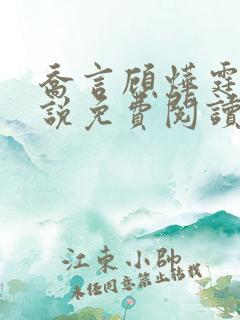 喬言顧燁霆
說免費閱讀
江東小帥
未任同意禁止转载